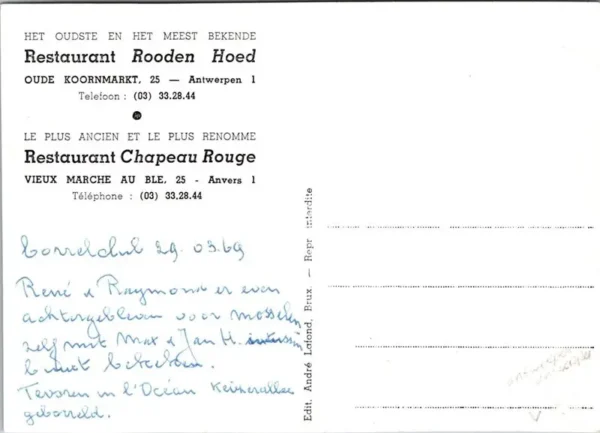 HET OUDSTE EN HET MEEST BEKENDE
Restaurant Rooden Hoed
OUDE KOORNMARKT, 25 — Antwerpen 1
Telefoon : (03) 33.28.44
LE PLUS ANCIEN ET LE PLUS RENOMME
Restaurant Chapeau Rouge
VIEUX MARCHE AU BLE, 25 - Anvers 1
Téléphone : (03) 33.28.44
Borrelclub 29.03.69
René & Raymond er even
achtergebleven voor mosselen
zelf met Max & Jan H.
Tevoren in l'Océan Keizerallee
geborreld.
Edit. André Lafond, Brux. — Repr. interdite